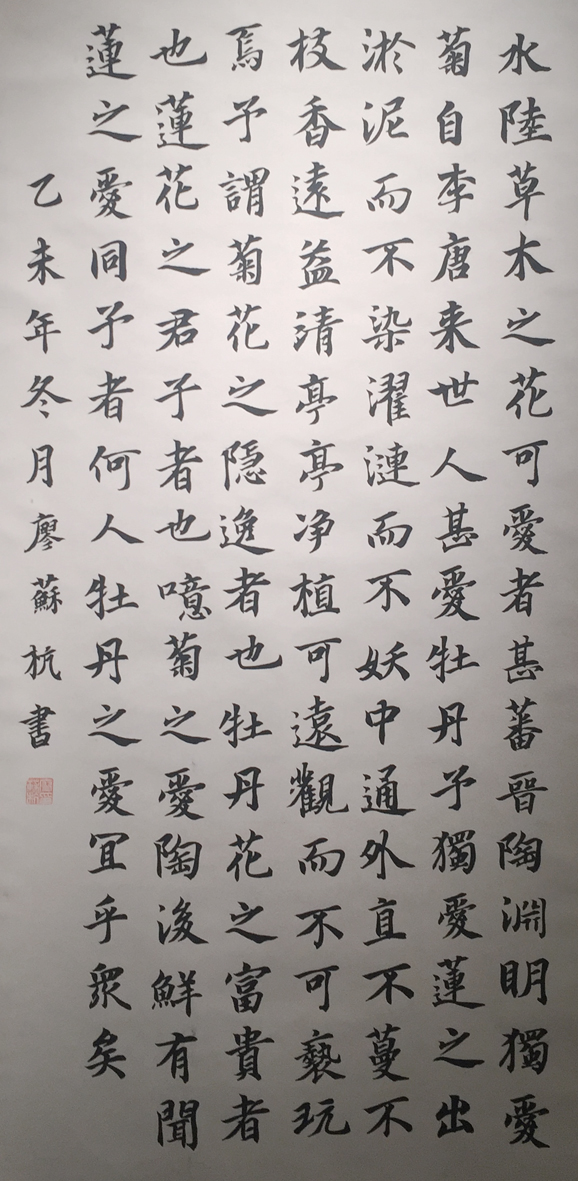 水陸草木之花可愛者甚蕃晉陶淵明獨愛
菊自李唐来世人甚愛牡丹予獨愛蓮之出
淤泥而不染濯漣而不妖中通外直不蔓不
枝香遠益清亭亭净植可遠觀而不可褻玩
焉予謂菊花之隱逸者也牡丹花之富貴者
也蓮花之君子者也噫菊之愛陶後鮮有聞
蓮之愛同予者何人牡丹之愛宜乎衆矣
乙未年冬月廖蘇杭書